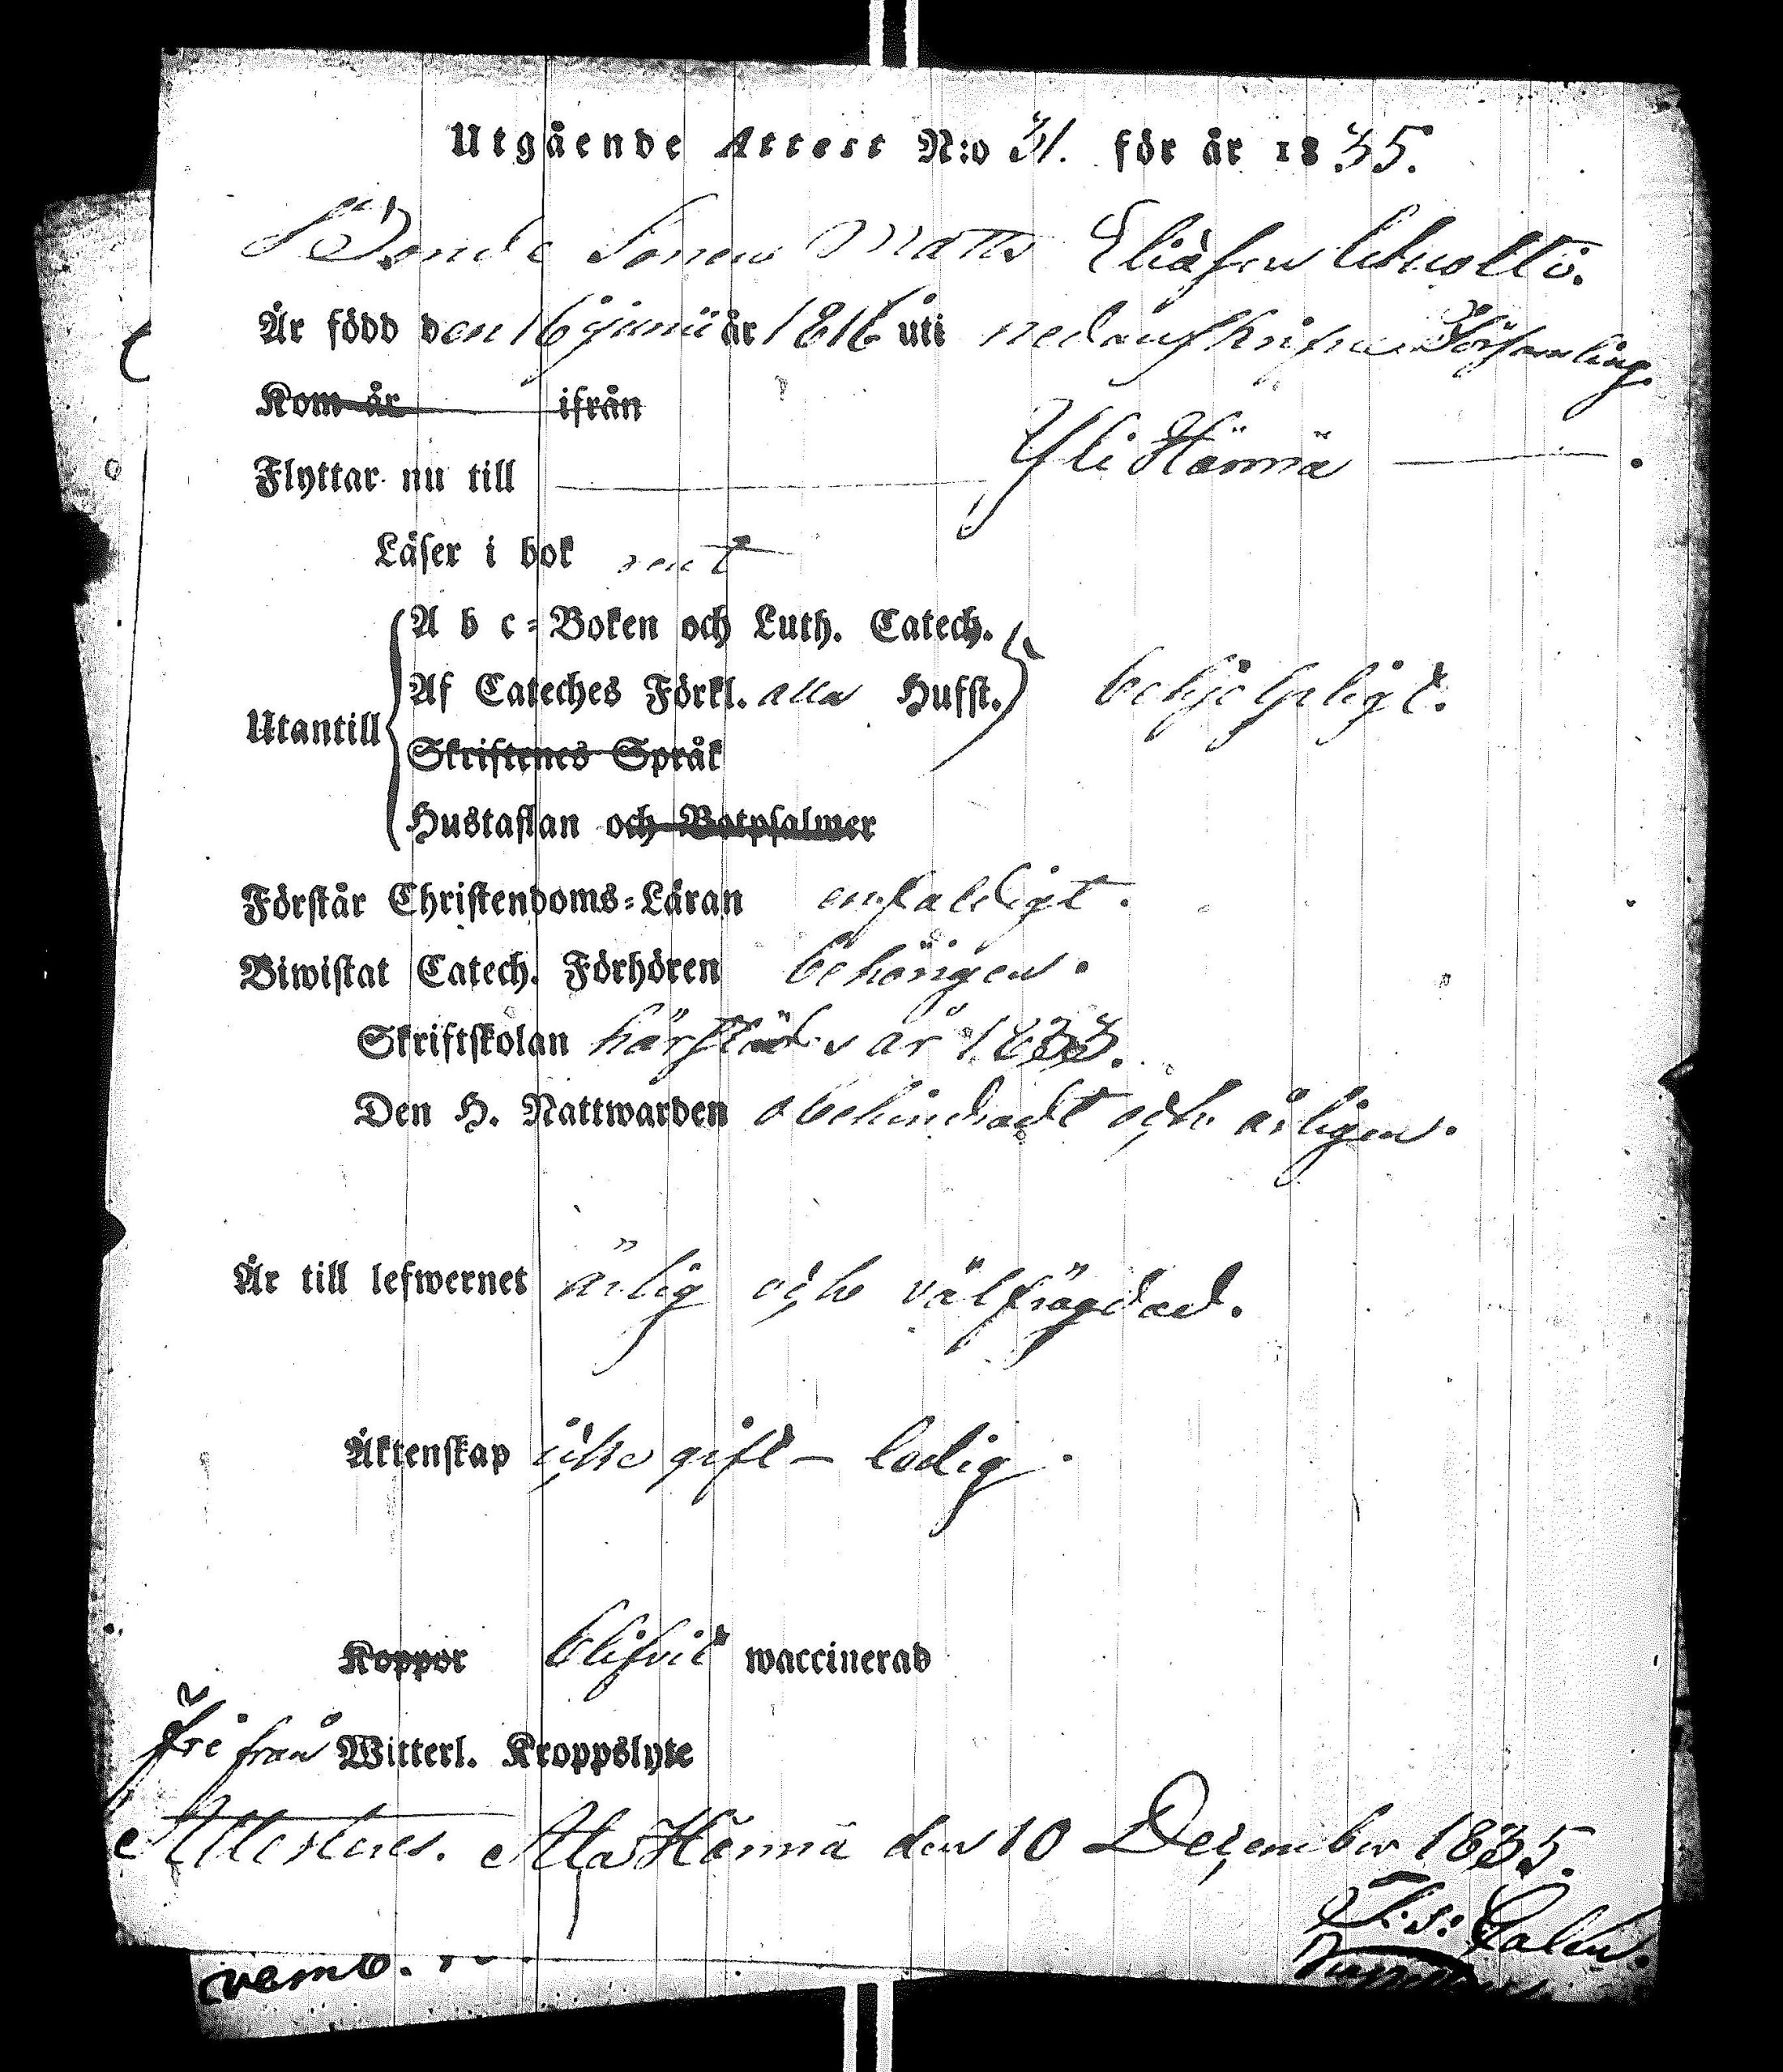 Utgående Attest N:o 31. för år 1835.
Bonde Sonen Matts Eliasson
Är född den 16 junii år 1816 uti nedanskrifne Församling.
Kom år ifrån
Flyttar nu till Yli Härmä.
Läser i bok rent
A b c-Boken och Luth. Catech.
Af Cateches Förkl. alla Hufst. behjelpligt.
Utantill
Skriftenes Språk
Hustaflan och Botpsalmer
Förstår Christendoms-Läran enfaldigt.
Biwistat Catech. Förhören behörigen.
Skriftskolan härstädes år 1833.
Den H. Nattwarden obehindradt och årligen.
Är till lefwernet ärlig och välfrägdad.
Äktenskap icke gift - ledig.
Koppor blifvit waccinerad
Fri från Witterl. Kroppslyte
Attesteres. Ala Härmä den 10 December 1835.